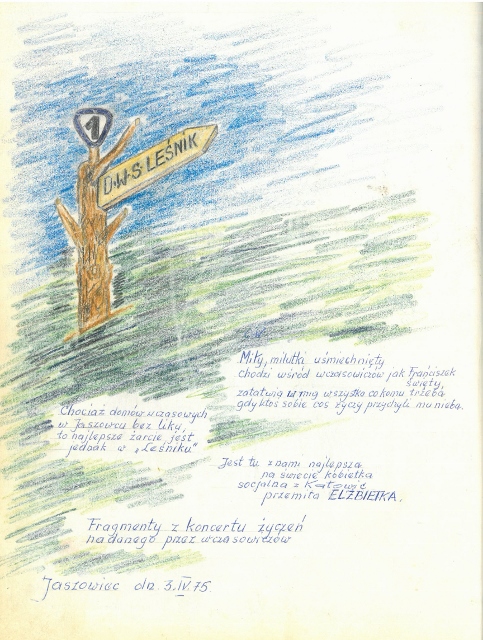 1
D.W.S LEŚNIK
Miły, milutki uśmiechnięty
chodzi wśród wczasowiczów jak Franciszek
święty,
załatwia w mig wszystko co komu trzeba
gdy ktoś sobie coś życzy przychyli mu nieba.
Chociaż domów wczasowych
w Jaszowcu bez liku,
to najlepsze żarcie jest
jednak w „Leśniku"
Jest tu z nami najlepsza
na świecie kobietka
socjalna z Katowic
przemiła ELŻBIETKA.
Fragmenty z koncertu życzeń
nadanego przez wczasowiczów
Jaszowiec dn. 3.IV.75.